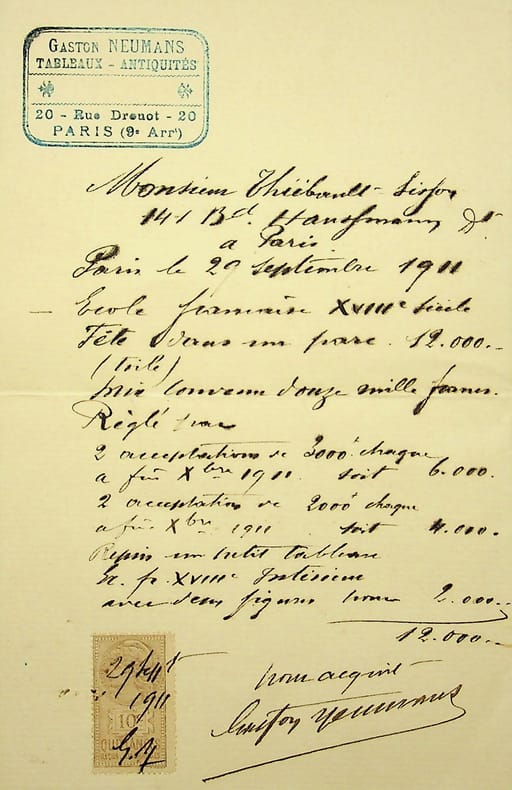 GASTON NEUMANS
TABLEAUX - ANTIQUITÉS
20 - Rue Drouot - 20
PARIS (9e Arrt)
Monsieur Thiébault-Sisson
141 Bd. Haussmann Dt
a Paris
Paris le 29 septembre 1911
Ecole francaise XVIIIe siècle
Fête dans un parc. 12.000.-
(toile)
prix convenu douze mille francs.
Règlé par
2 acceptations de 3000 chaque
a fin Xbre 1911 soit 6.000.
2 acceptations de 2000 chaque
a fin Xbre 1911 soit 4.000.
Repris un petit tableau
Ec. fr. XVIIIe Intérieur
avec deux figures pour 2.000.-
12.000.-
pour acquit
Gaston Neumans
29 Sept
1911
10c
G.N